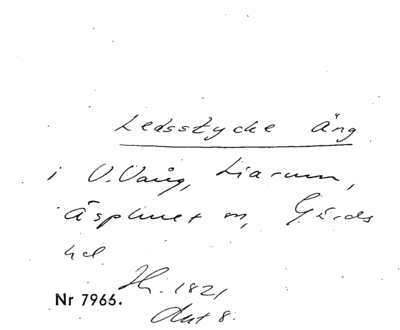 Ledsstycke äng
i V. Vång, Liarum,
Äsphult m, Gärds
hd
Nr 7966.
1821
Akt 8.